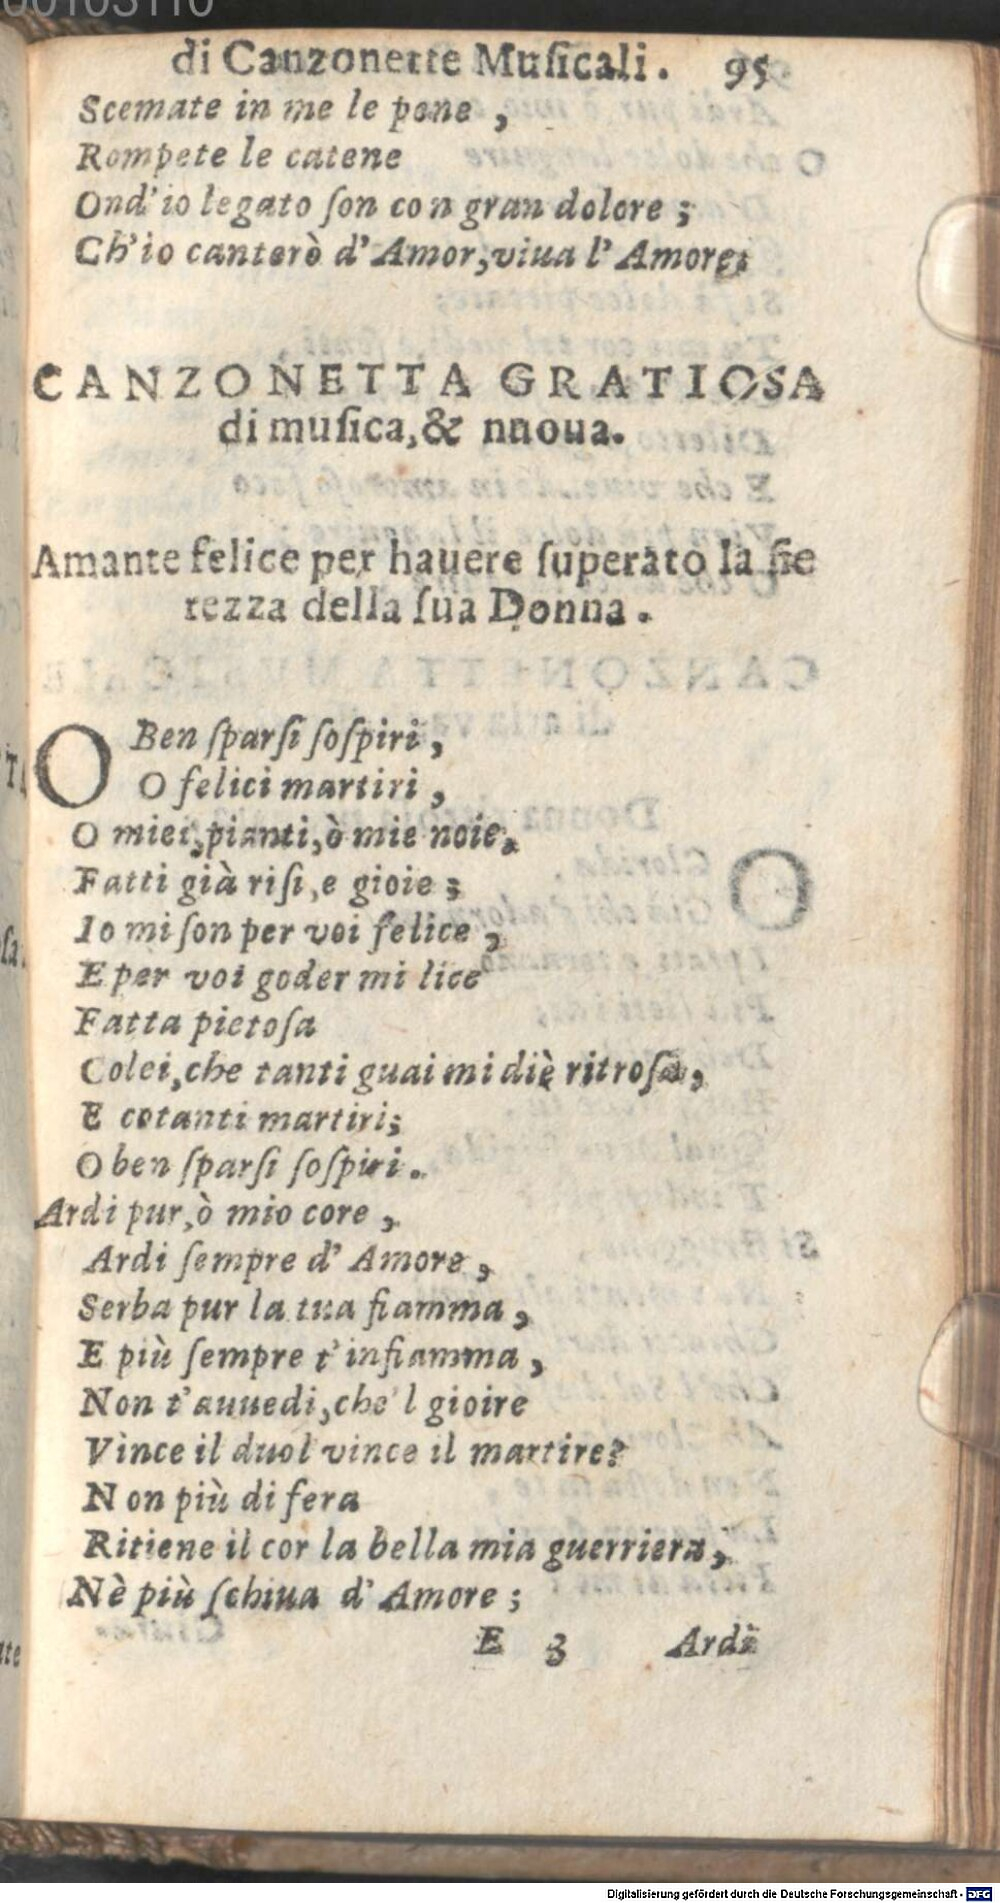 di Canzonette Muſicali. 95
Scemate in me le pene,
Rompete le catene
Ond'io legato ſon con gran dolore;
Ch'io canterò d'Amor, viua l'Amore.
CANZONETTA GRATIOSA
di muſica, & nuoua.
Amante felice per hauere ſuperato la fie
rezza della ſua Donna.
O Ben ſparſi ſoſpiri,
O felici martiri,
O miei pianti, ò mie noie,
Fatti già riſi, e gioie;
Io mi ſon per voi felice,
E per voi goder mi lice
Fatta pietoſa
Colei, che tanti guai mi diè ritroſa,
E cotanti martiri;
O ben ſparſi ſoſpiri.
Ardi pur, ò mio core,
Ardi ſempre d'Amore,
Serba pur la tua fiamma,
E più ſempre t'infiamma,
Non t'auuedi, che'l gioire
Vince il duol vince il martire?
Non più di fera
Ritiene il cor la bella mia guerriera,
Nè più ſchiua d'Amore;
E 3 Ardi
Digitalisierung gefördert durch die Deutsche Forschungsgemeinschaft - DFG